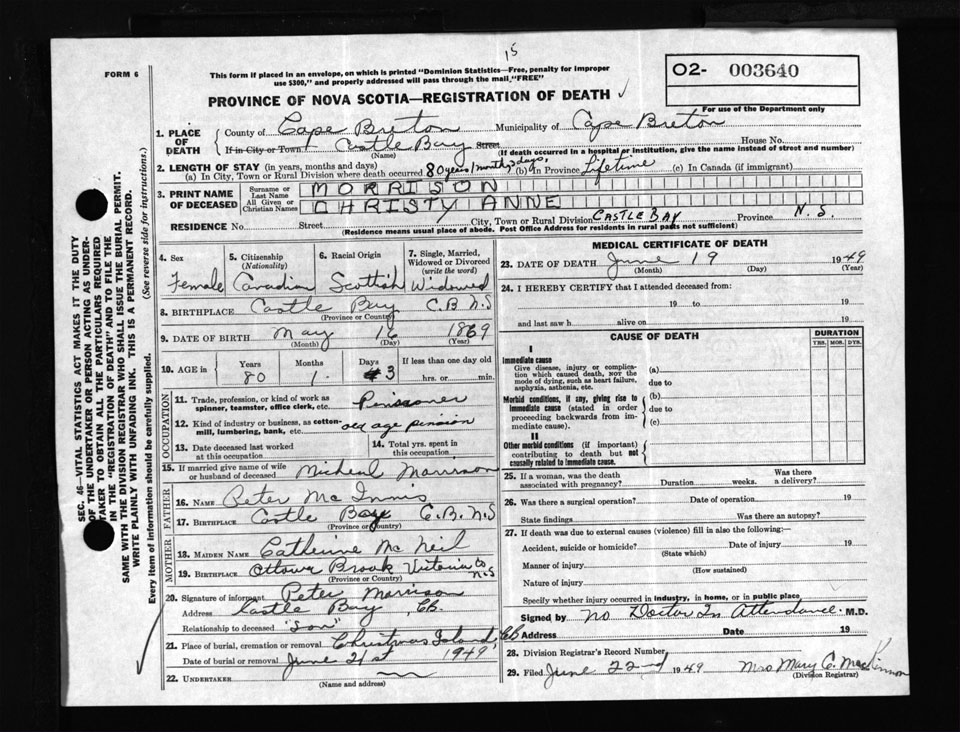 15
FORM 6
This form if placed in an envelope, on which is printed "Dominion Statistics—Free, penalty for improper
use $300," and properly addressed will pass through the mail "FREE"
02- 003640
For use of the Department only
PROVINCE OF NOVA SCOTIA—REGISTRATION OF DEATH ✓
1. PLACE OF DEATH
County of Cape Breton Municipality of Cape Breton
If in City or Town Castle Bay Street House No.
(Name) (If death occurred in a hospital or institution, give the name instead of street and number)
2. LENGTH OF STAY (in years, months and days)
(a) In City, Town or Rural Division where death occurred 80 years 1 month 3 days, (b) In Province Lifetime (c) In Canada (if immigrant)
3. PRINT NAME OF DECEASED
Surname or Last Name MORRISON
All Given or Christian Names CHRISTY ANNE
RESIDENCE No. Street City, Town or Rural Division CASTLE BAY Province N.S.
(Residence means usual place of abode. Post Office Address for residents in rural parts not sufficient)
4. Sex 5. Citizenship 6. Racial Origin 7. Single, Married,
(Nationality) Widowed or Divorced
(write the word)
Female Canadian Scottish Widowed
8. BIRTHPLACE Castle Bay C.B N.S
(Province or Country)
9. DATE OF BIRTH May 16 1869
(Month) (Day) (Year)
10. AGE in Years Months Days If less than one day old
80 1 3 hrs. or min.
OCCUPATION
11. Trade, profession, or kind of work as
spinner, teamster, office clerk, etc. Pensioner
12. Kind of industry or business, as cotton-
mill, lumbering, bank, etc. old age pension
13. Date deceased last worked 14. Total yrs. spent in
at this occupation this occupation
15. If married give name of wife
or husband of deceased Micheal Morrison
FATHER
16. NAME Peter Mc Innis
17. BIRTHPLACE Castle Bay C.B. N.S
(Province or Country)
MOTHER
18. MAIDEN NAME Catherine Mc Neil
19. BIRTHPLACE Ottawa Brook Victoria Co N.S
(Province or Country)
20. Signature of informant Peter Morrison
Address Castle Bay CB.
Relationship to deceased "Son"
21. Place of burial, cremation or removal Christmas Island, CB
Date of burial or removal June 21st 1949
22. UNDERTAKER
(Name and address)
MEDICAL CERTIFICATE OF DEATH
23. DATE OF DEATH June 19 1949
(Month) (Day) (Year)
24. I HEREBY CERTIFY that I attended deceased from:
19 to 19
and last saw h alive on 19
CAUSE OF DEATH DURATION
YRS. MOS. DYS.
I
Immediate cause
Give disease, injury or complica-
tion which caused death, NOT the
mode of dying, such as heart failure,
asphyxia, asthenia, etc.
(a)
due to
Morbid conditions, if any, giving rise to
immediate cause (stated in order
proceeding backwards from im-
mediate cause).
(b)
due to
(c)
II
Other morbid conditions (if important)
contributing to death but not
causally related to immediate cause.
25. If a woman, was the death Was there
associated with pregnancy? Duration weeks. a delivery?
26. Was there a surgical operation? Date of operation 19
State findings Was there an autopsy?
27. If death was due to external causes (violence) fill in also the following:—
Accident, suicide or homicide? Date of injury 19
(State which)
Manner of injury
(How sustained)
Nature of injury
Specify whether injury occurred in industry, in home, or in public place
Signed by No Doctor In Attendance. M.D.
Address Date 19
28. Division Registrar's Record Number
29. Filed June 22nd 1949 Mrs Mary C. MacKinnon
(Division Registrar)
SEC. 46—VITAL STATISTICS ACT MAKES IT THE DUTY
OF THE UNDERTAKER OR PERSON ACTING AS UNDER-
TAKER TO OBTAIN ALL THE PARTICULARS REQUIRED
IN THE "REGISTRATION OF DEATH" AND TO FILE THE
SAME WITH THE DIVISION REGISTRAR WHO SHALL ISSUE THE BURIAL PERMIT.
WRITE PLAINLY WITH UNFADING INK. THIS IS A PERMANENT RECORD.
Every item of information should be carefully supplied. (See reverse side for instructions.)